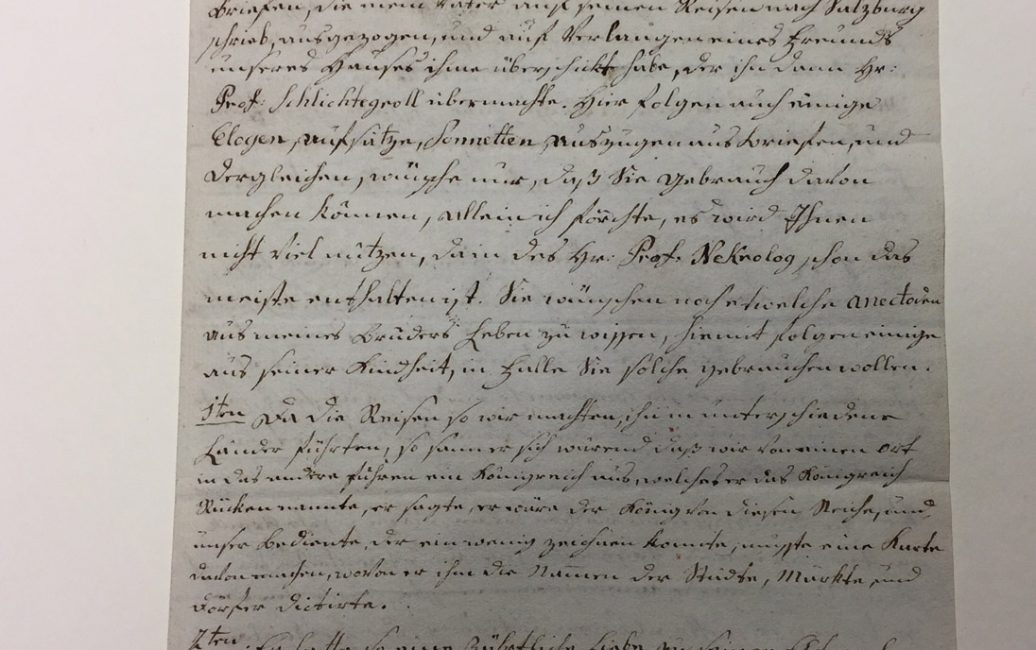 Briefen, die mein Vater auf seinen Reisen nach Salzburg
schrieb, ausgezogen, und auf Verlangen eines Freunds
unseres Hauses ihme überschickt habe, der ihn dann Hr:
Prof: Schlichtegroll übermachte. Hier folgen auch einige
Elogen, Aufsätze, Sonnetten, Auszügen aus Briefen, und
dergleichen, wünsche nur, daß Sie gebrauch davon
machen können, allein ich förchte, es wird Ihnen
nicht viel nützen, da in des Hr: Prof: Nekrolog schon das
meiste enthalten ist. Sie wünschen noch etwelche anectoden
aus meines Bruders Leben zu wissen, hiemit folgen einige
aus seiner Kindheit, in Falle Sie solche gebrauchen wollen.
1ten Da die Reisen so wir machten, ihn in unterschiedene
Länder führten, so sann er sich wärend daß wir von einen ort
in das andere fuhren ein Königreich aus, welches er das Königreich
Rücken nannte, er sagte, er wäre der König von diesen Reiche, und
unser Bediente, der ein wenig zeichnen konnte, mußte eine Karte
davon machen, wovon er ihm die Nammen der Städte, Märkte und
Dörfer dictirte.
2ten Er hatte so eine zärtliche Liebe zu seinen